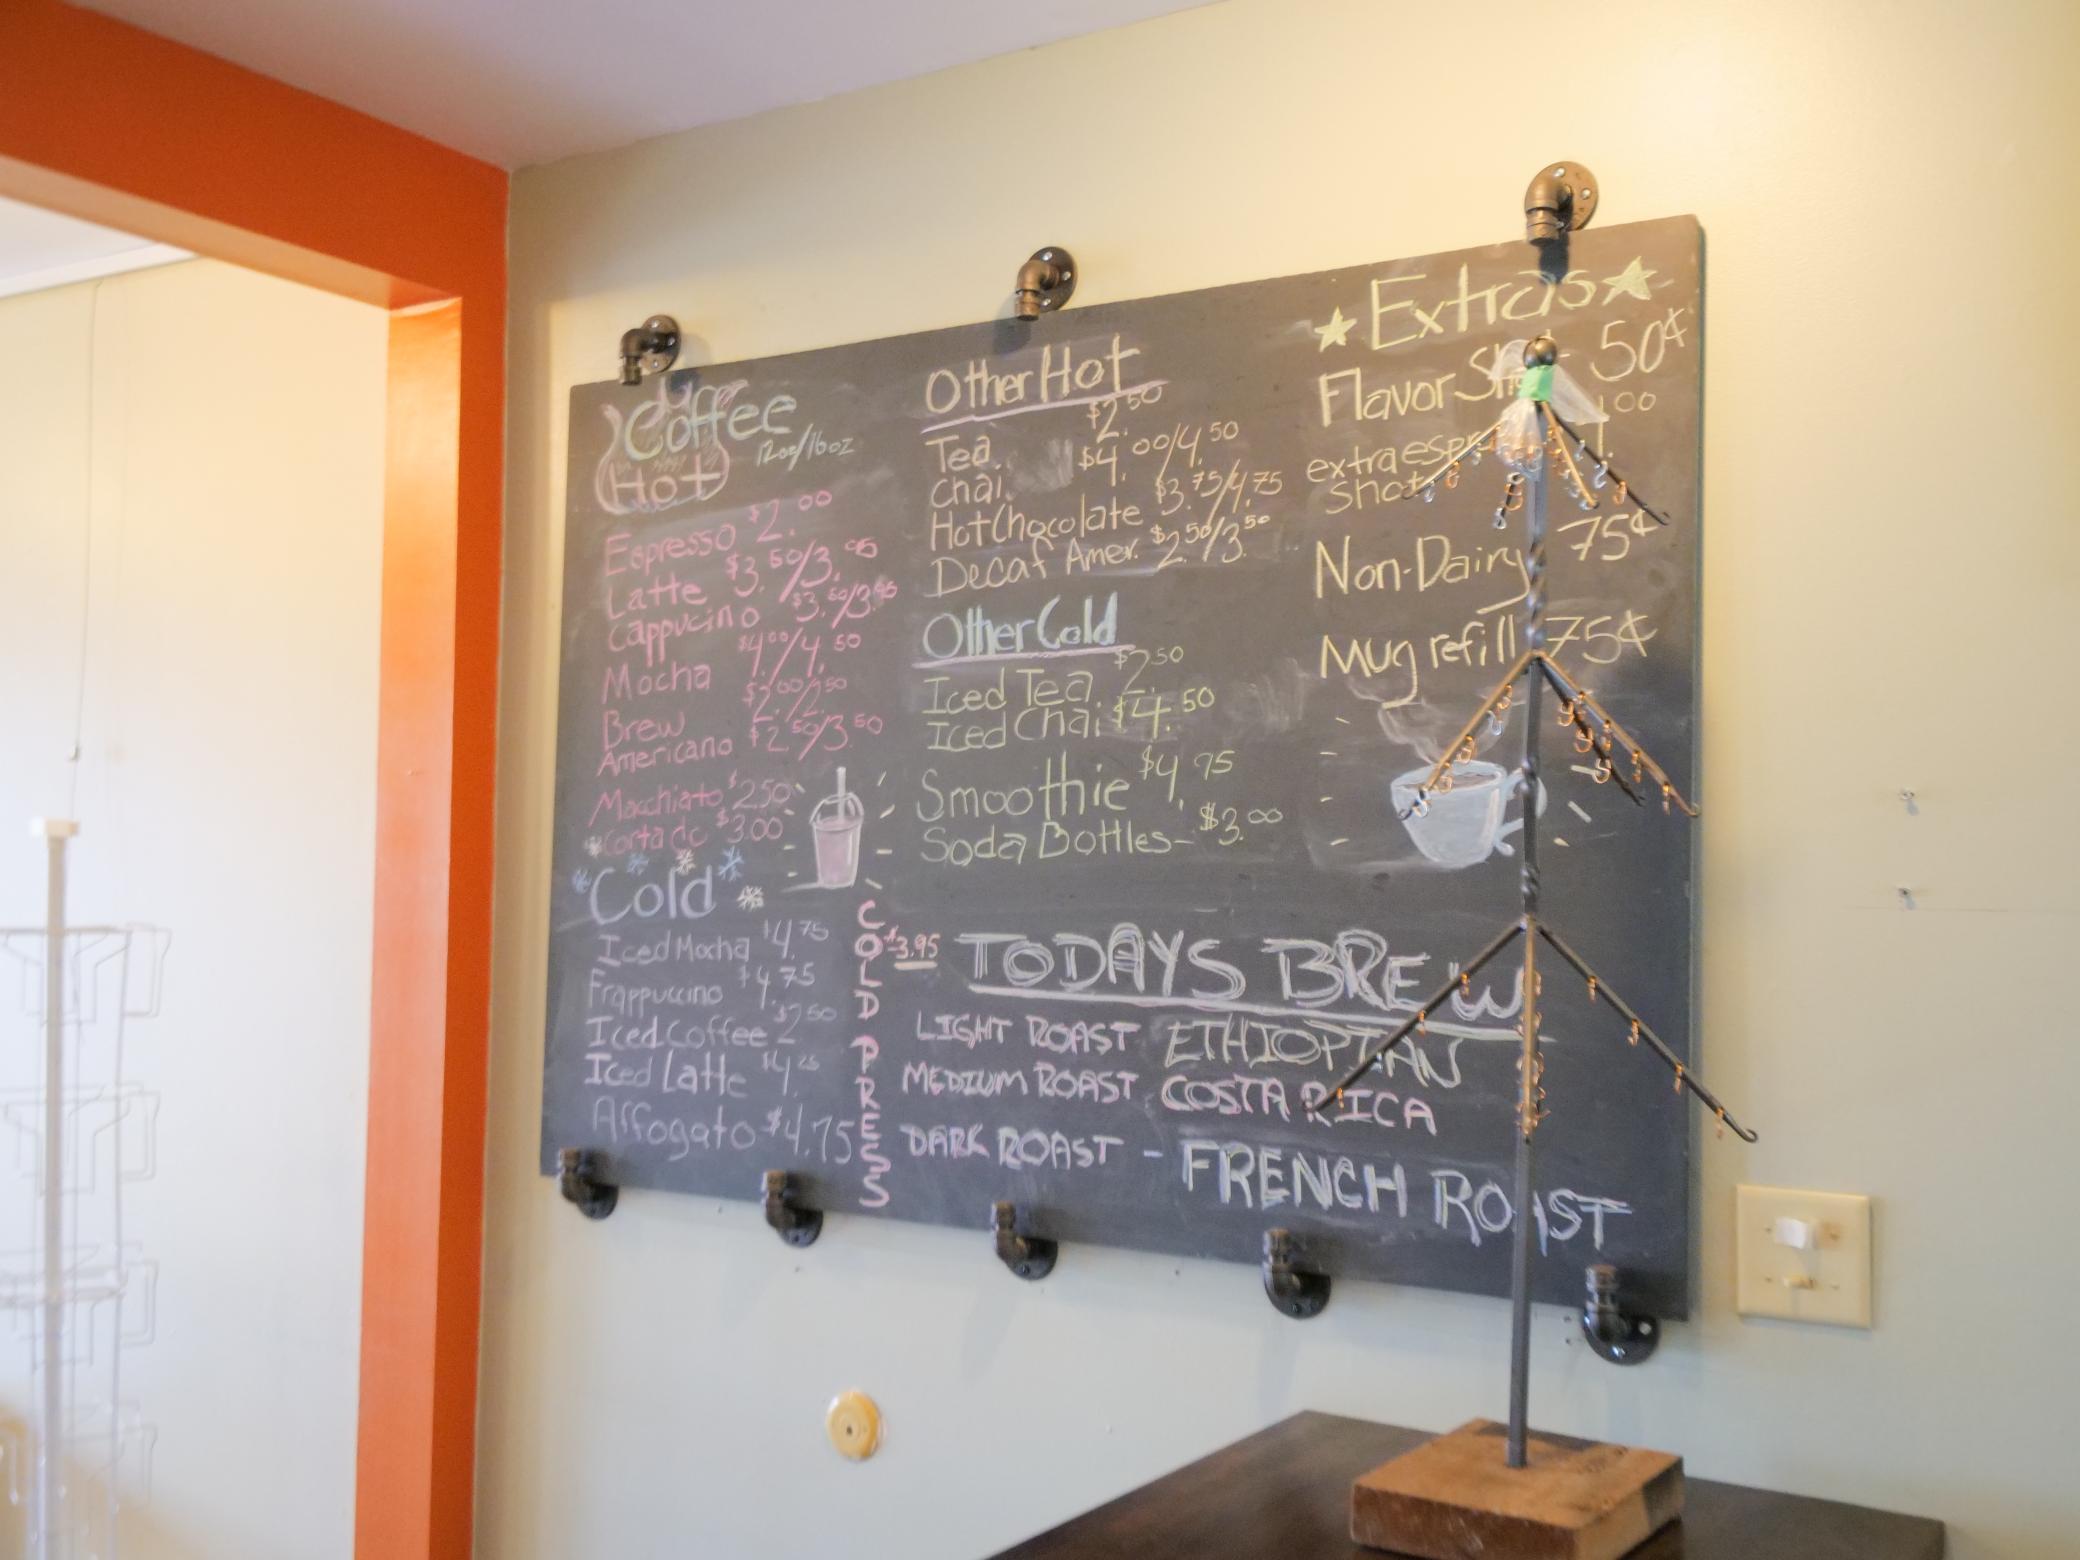 Coffee
Hot 12oz/16oz
Espresso $2.00
Latte $3.50/3.95
Cappucino $3.50/3.95
Mocha $4.00/4.50
Brew $2.00/2.50
Americano $2.50/3.50
Macchiato $2.50
Cortado $3.00
Cold
Iced Mocha $4.75
Frappuccino $4.75
Iced Coffee $2.50
Iced Latte $4.25
Affogato $4.75
COLD PRESS
$3.95
Other Hot
Tea $2.50
Chai $4.00/4.50
Hot Chocolate $3.75/4.75
Decaf Amer. $2.50/3.50
Other Cold
Iced Tea $2.50
Iced Chai $4.50
Smoothie $4.75
Soda Bottles- $3.00
Extras
Flavor 50¢
extra 1.00
Shot
Non-Dairy 75¢
Mug refill 75¢
TODAYS BREW
LIGHT ROAST ETHIOPIAN
MEDIUM ROAST COSTA RICA
DARK ROAST - FRENCH ROAST